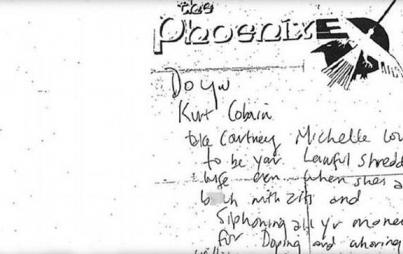 the
Phoenix
Do You
Kurt Cobain
take Courtney Michelle Lov
to be your Lawful Shredd
wife even when shes a
b ch with zits and
Siphoning all yr money
for Doping and whoring